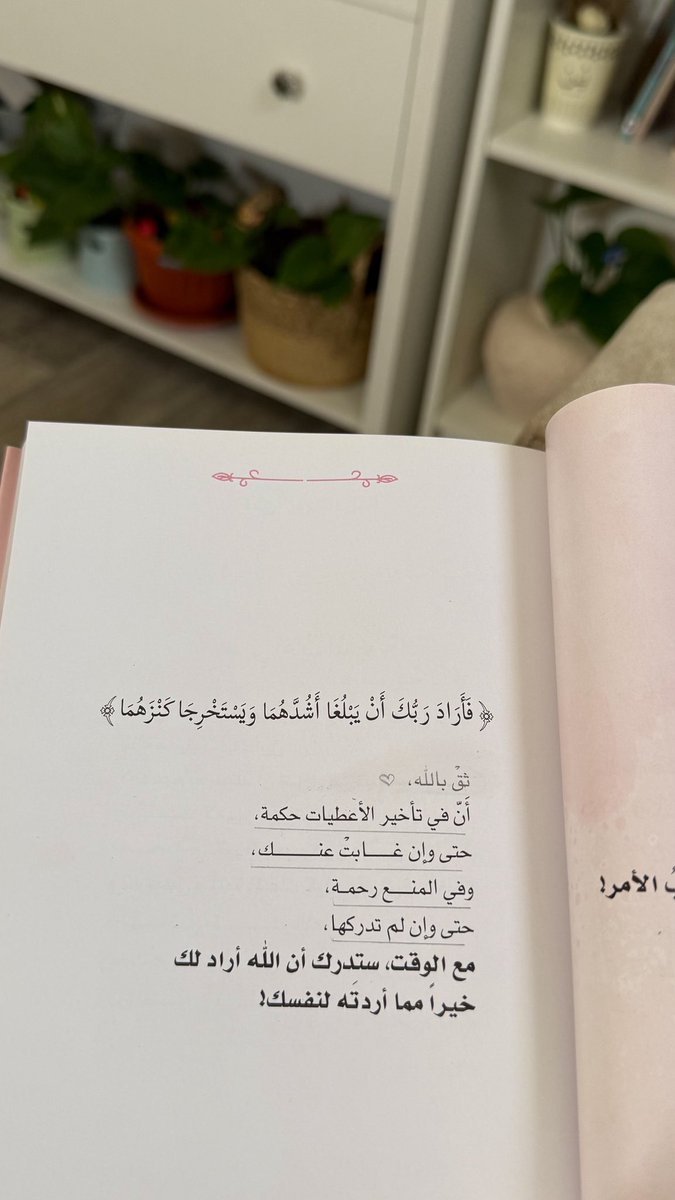 ﴿فَأَرَادَ رَبُّكَ أَنْ يَبْلُغَا أَشُدَّهُمَا وَيَسْتَخْرِجَا كَنْزَهُمَا﴾
ثقْ بالله،
أنّ في تأخير الأعطيات حكمة،
حتى وإن غـــابتْ عنــــــك،
وفي المنـــع رحمـة،
حتى وإن لم تدركها،
مع الوقت، ستدرك أن الله أراد لك
خيراً مما أردتَه لنفسك!
الأمر!